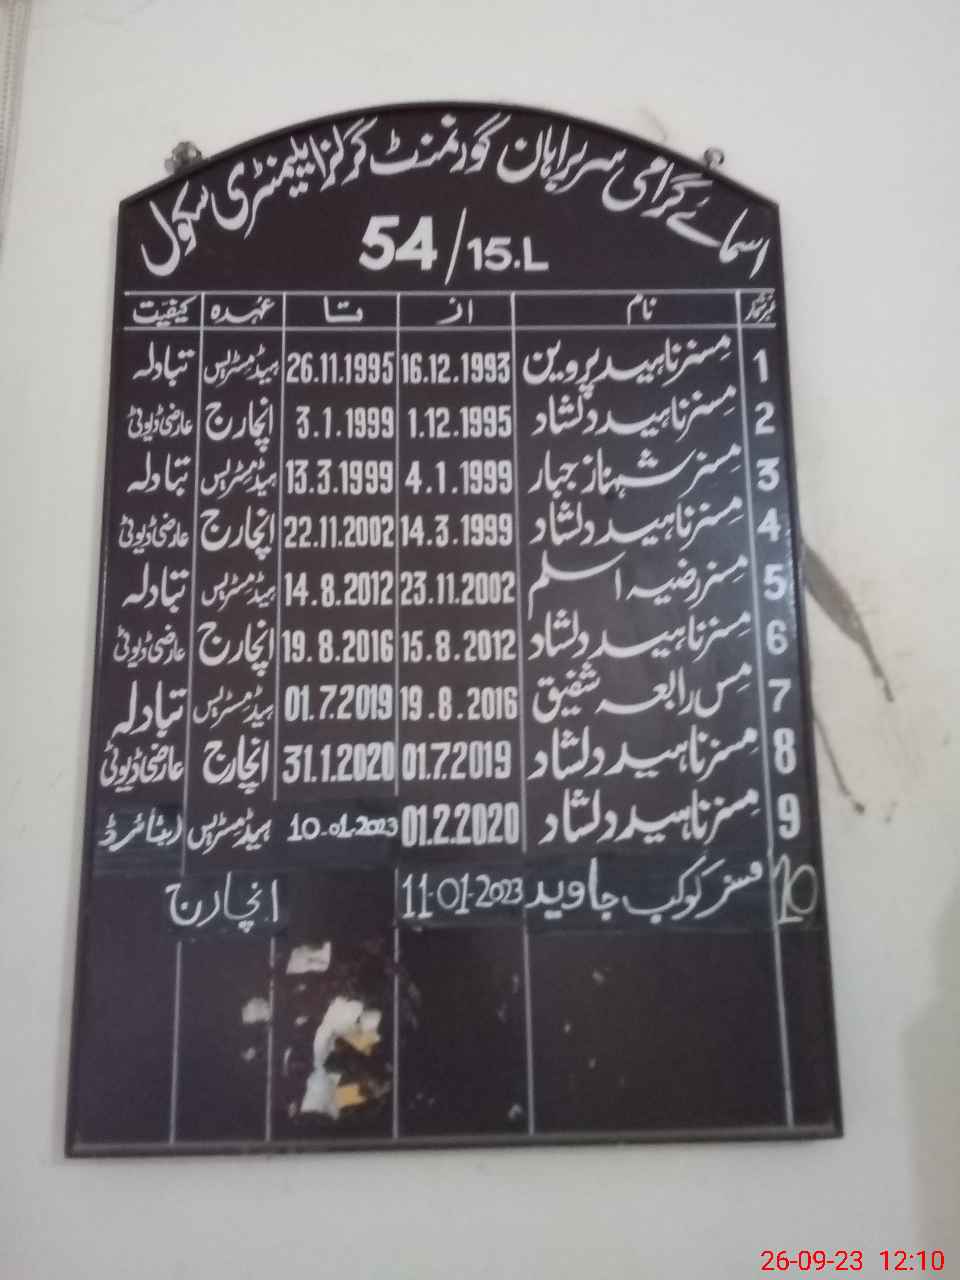 اسمائے گرامی سربراہان گورنمنٹ گرلز ایلیمنٹری سکول
54/15.L
نمبرشمار نام از تا عہدہ کیفیت
1 مسز ناہید پروین 16.12.1993 26.11.1995 ہیڈمسٹریس تبادلہ
2 مسز ناہید دلشاد 1.12.1995 3.1.1999 انچارج عارضی ڈیوٹی
3 مسز شہناز جبار 4.1.1999 13.3.1999 ہیڈمسٹریس تبادلہ
4 مسز ناہید دلشاد 14.3.1999 22.11.2002 انچارج عارضی ڈیوٹی
5 مسز رضیہ اسلم 23.11.2002 14.8.2012 ہیڈمسٹریس تبادلہ
6 مسز ناہید دلشاد 15.8.2012 19.8.2016 انچارج عارضی ڈیوٹی
7 مس رابعہ شفیق 19.8.2016 01.7.2019 ہیڈمسٹریس تبادلہ
8 مسز ناہید دلشاد 01.7.2019 31.1.2020 انچارج عارضی ڈیوٹی
9 مسز ناہید دلشاد 01.2.2020 10-01-2023 ہیڈمسٹریس ریٹائرڈ
10 مسز کوکب جاوید 11-01-2023 انچارج
26-09-23 12:10